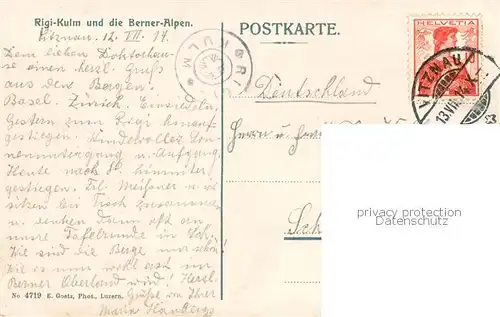 Rigi-Kulm und die Berner-Alpen.
POSTKARTE.
HELVETIA
RIGI KULM
VITZNAU
13.VII.
Vitznau, 12. VII. 14.
Dem lieben Doktorhau-
se einen herzl. Gruß
aus den Bergen.
Basel. Zürich.
Gestern zum Rigi hinauf-
gestiegen. Wundervoller Son-
nenuntergang u. Aufgang.
Heute nach hinunter
gestiegen. Frl. Meißner u.
sitzen bei Tisch zusammen
u. denken dann oft an
unsre Tafelrunde in
Wie sind die Berge nur schön!
Wie es nun wohl erst im
Berner Oberland wird! Herzl.
Grüße von Ihrer
Maria
Deutschland
Herrn u. Frau
Sch
privacy protection
Datenschutz
No 4719 E. Goetz, Phot., Luzern.